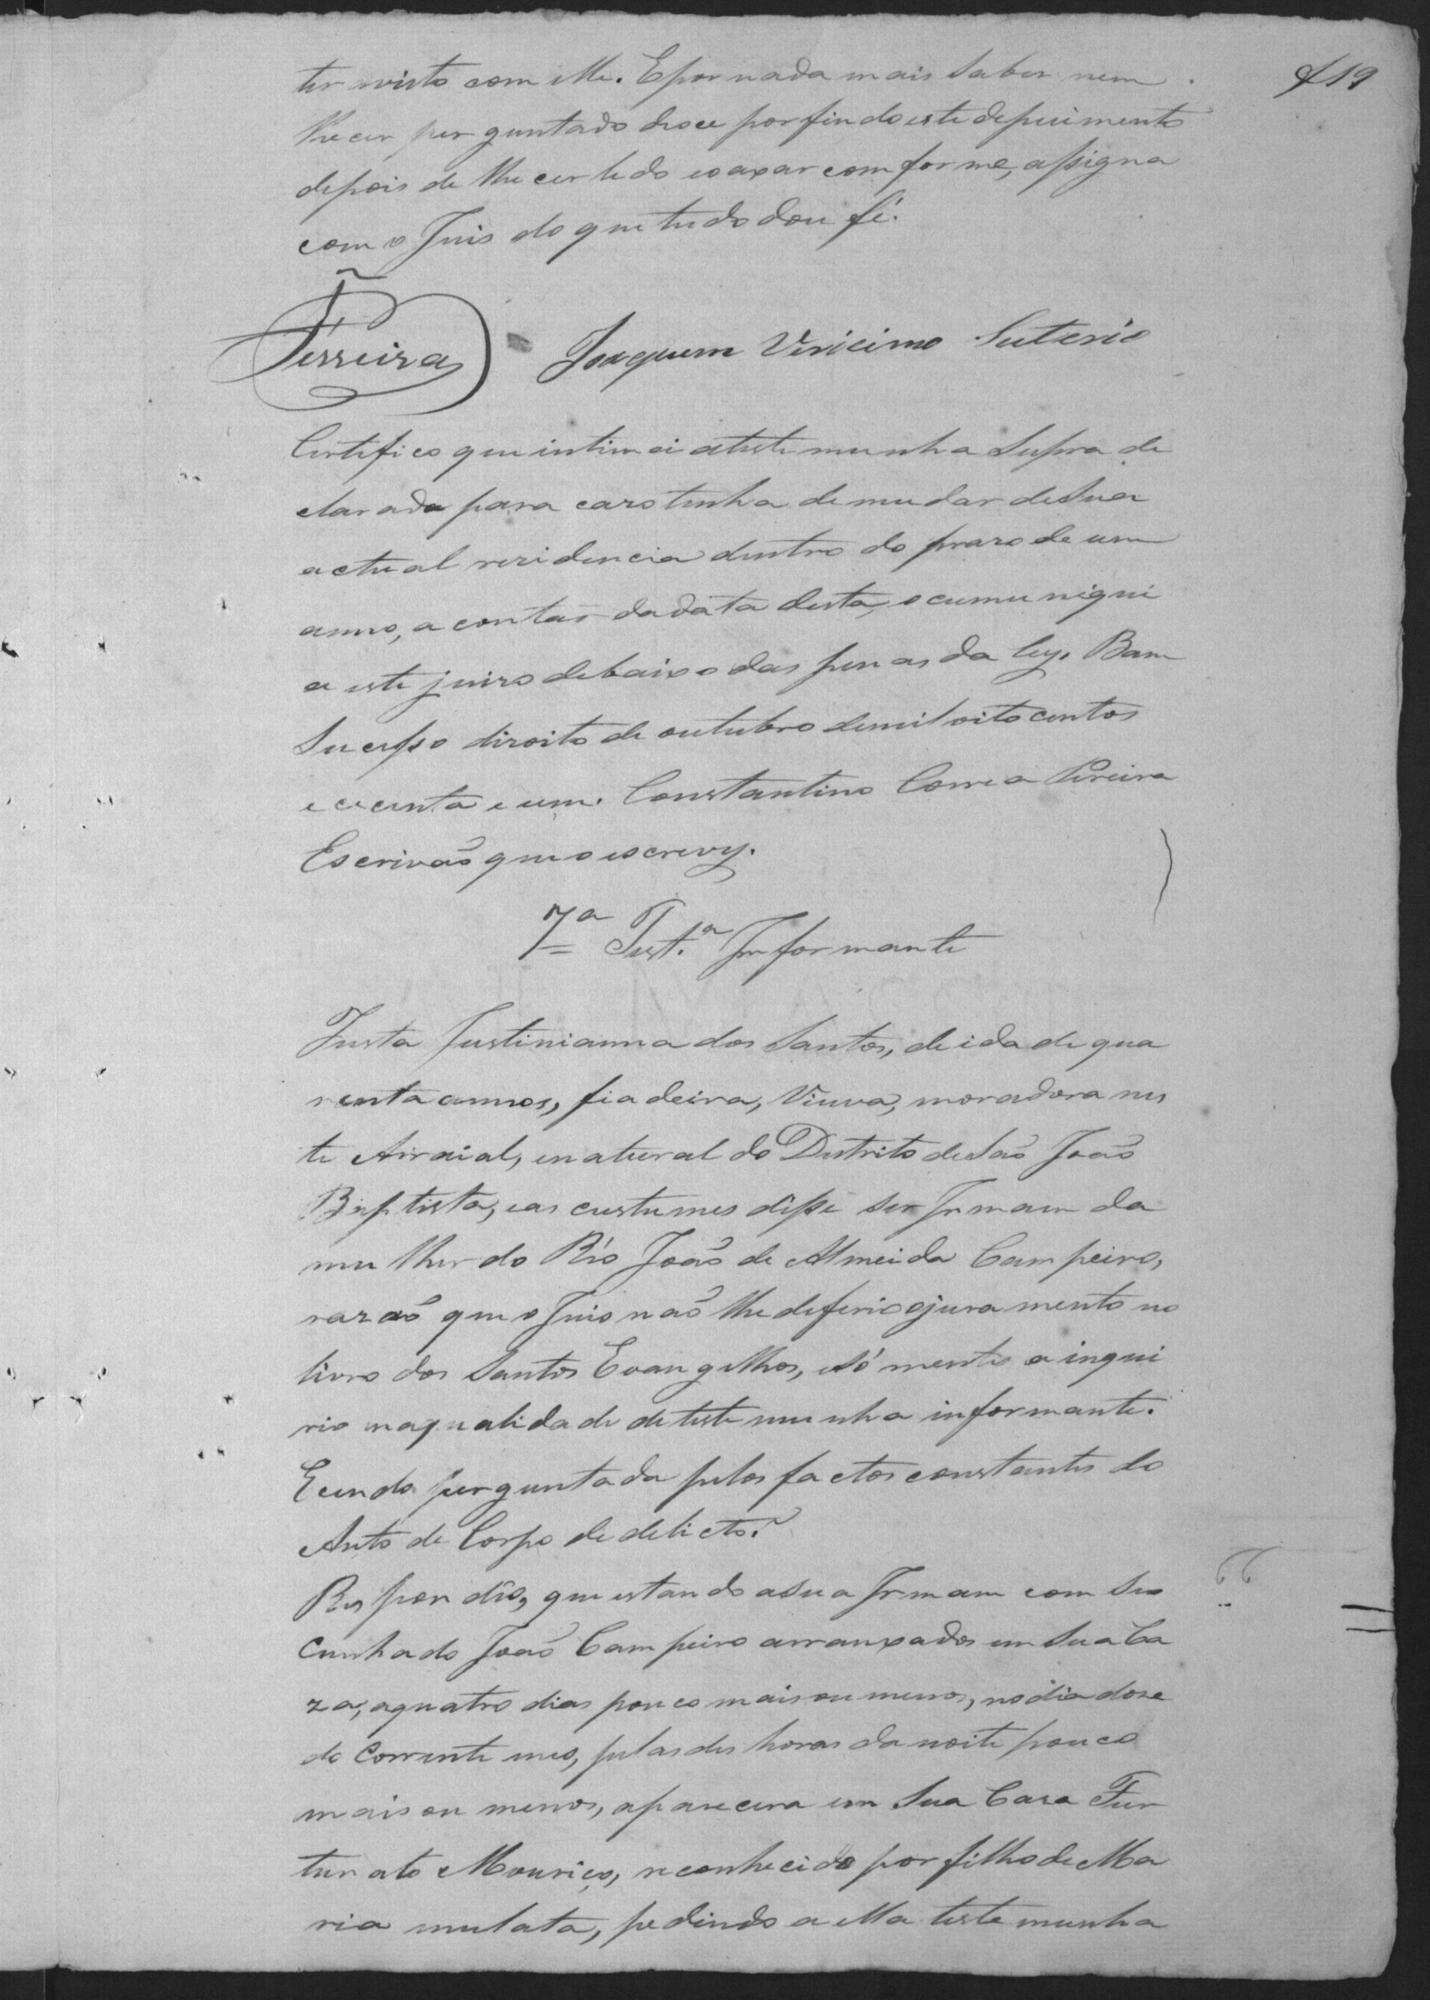 419
ter visto com elle. E por nada mais saber nem
lhe cer perguntado deoce por findo este depuimento
depois de lhe cer lido e o axar comforme, assigna
com o Juis do que tudo dou fé.
Ferreira Joaquim Viricimo Suterio
Certifico que intimei a testemunha supra de
clarada para cazo tenha de mudar de sua
actual rezidencia dentro do prazo de um
anno, a contar da data desta, o cumunique
a este juizo debaixo das penas da ley. Bom
Sucesso dizoito de outubro de mil oito centos
e cecenta e um. Constantino Correa Pereira
Escrivaõ que o escrevy.
7ª Test.ª Informante
Justa Justinianna dos Santos, de idade qua
renta annos, fiadeira, Viuva, moradora nes
te Arraial, e natural do Destrito de Saõ Joaõ
Baptista, e as custumes disse ser Irmam da
mulher do Réo Joaõ de Almeida Campeiro,
razaõ que o Juis naõ lhe deferio o juramento no
livro dos Santos Evangelhos, e só mente a inqui
rio na qualidade de testemunha informante.
E cendo perguntada pelos factos constantes do
Auto de Corpo de delicto?
Respondeo, que estando a sua Irmam com seo
Cunhado Joaõ Campeiro arranxados em sua Ca
za, a quatro dias pouco mais ou menos, no dia doze
do Corrente mes, pelas des horas da noite pouco
mais ou menos, aparecera em sua Caza Fur
tunato Mouriço, reconhecido por filho de Ma
ria mulata, pedindo a ella testemunha